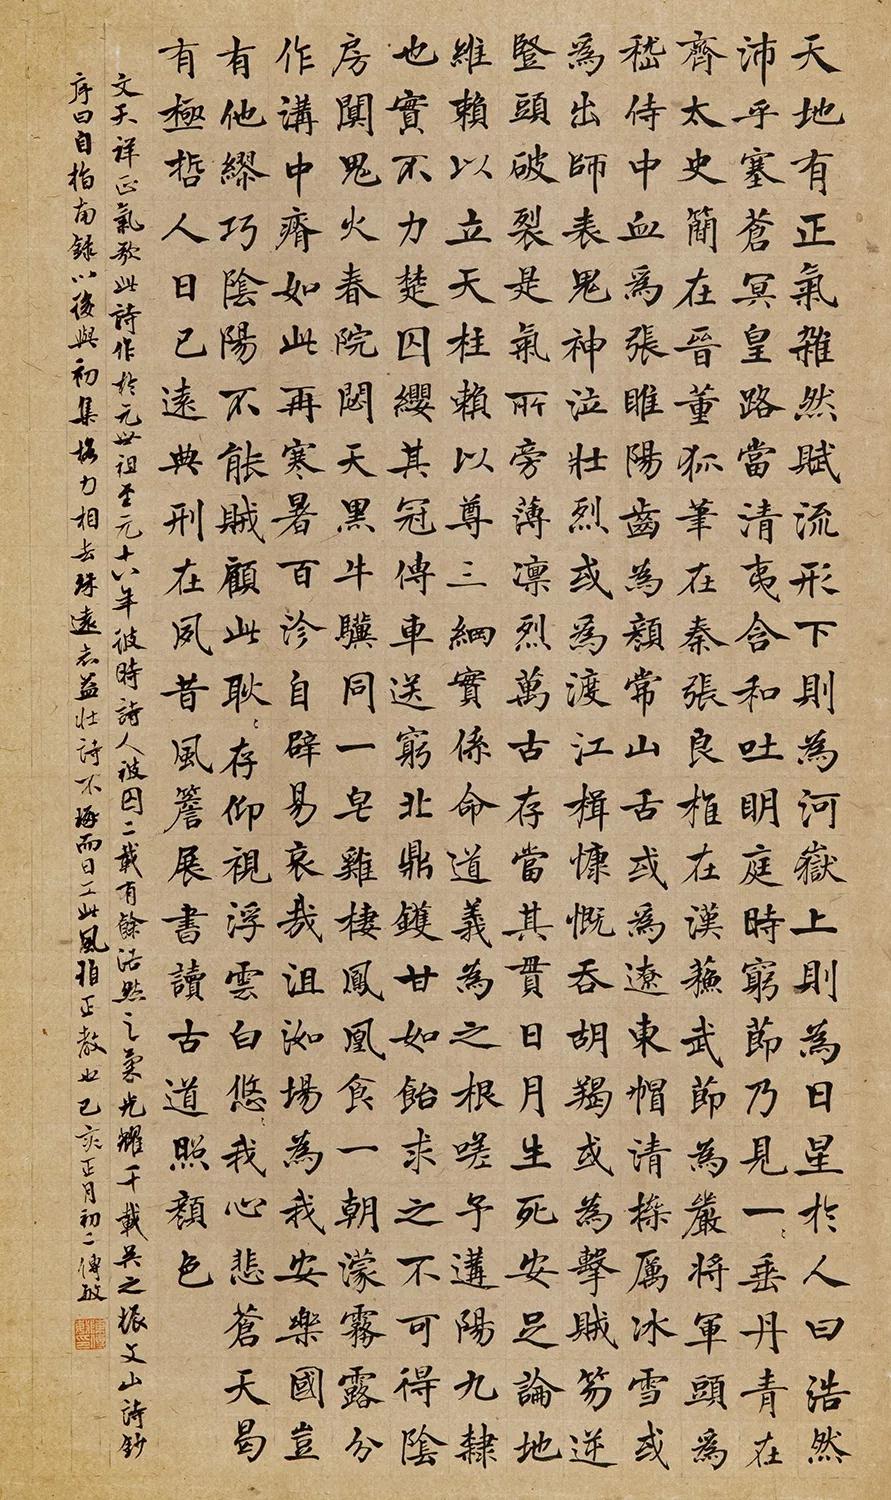 天地有正氣雜然賦流形下則為河嶽上則為日星於人曰浩然
沛乎塞蒼冥皇路當清夷含和吐明庭時窮節乃見一〻垂丹青在
齊太史簡在晉董狐筆在秦張良椎在漢蘇武節為嚴將軍頭為
嵇侍中血為張睢陽齒為顏常山舌或為遼東帽清操厲冰雪或
為出師表鬼神泣壯烈或為渡江楫慷慨吞胡羯或為擊賊笏逆
豎頭破裂是氣所旁薄凜烈萬古存當其貫日月生死安足論地
維賴以立天柱賴以尊三綱實係命道義為之根嗟予遘陽九隸
也實不力楚囚纓其冠傳車送窮北鼎鑊甘如飴求之不可得陰
房闃鬼火春院閟天黑牛驥同一皂雞棲鳳凰食一朝濛霧露分
作溝中瘠如此再寒暑百沴自辟易哀哉沮洳場為我安樂國豈
有他繆巧陰陽不能賊顧此耿〻存仰視浮雲白悠〻我心悲蒼天曷
有極哲人日已遠典刑在夙昔風簷展書讀古道照顏色
文天祥正氣歌此詩作於元世祖至元十八年彼時詩人被囚二載有餘浩然之氣光耀千載吳之振文山詩鈔
序曰自指南錄以後與初集格力相去殊遠志益壯詩不琢而日工此風雅正教也己亥正月初二傅敏